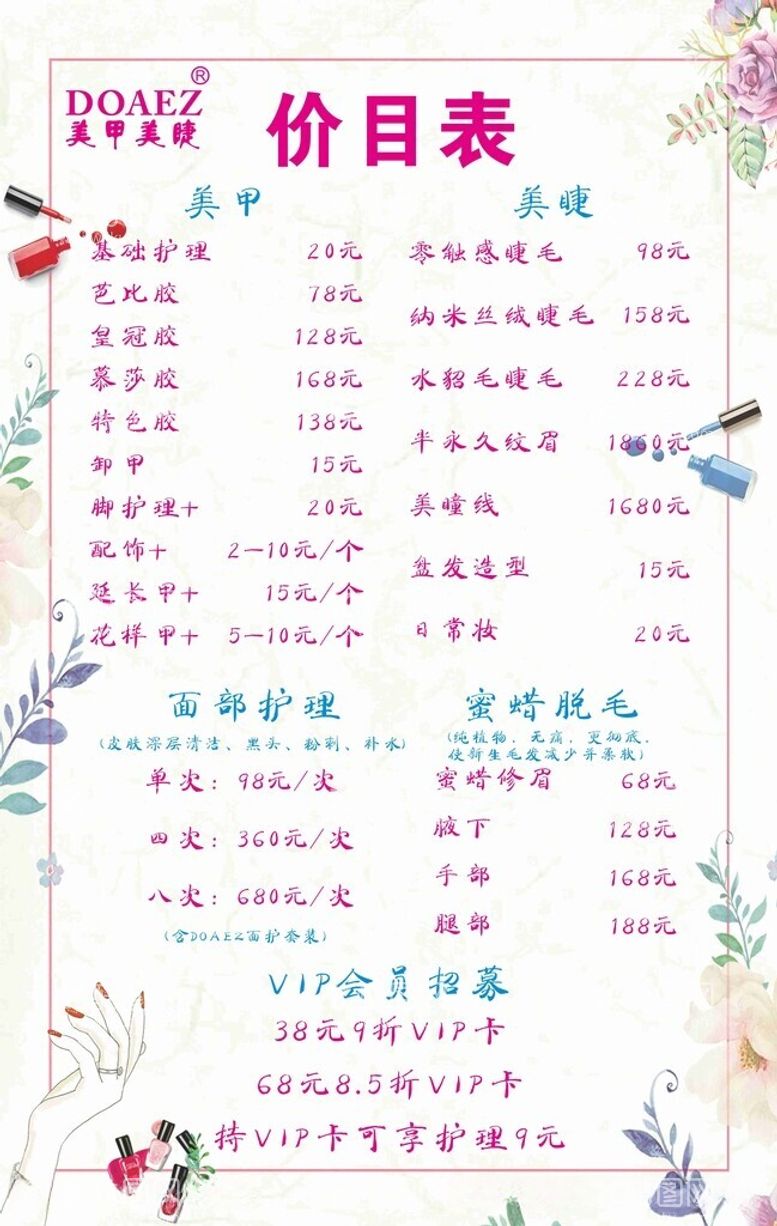 DOAEZ®
美甲美睫
价目表
美甲
基础护理 20元
芭比胶 78元
皇冠胶 128元
慕莎胶 168元
特色胶 138元
卸甲 15元
脚护理+ 20元
配饰+ 2—10元/个
延长甲+ 15元/个
花样甲+ 5—10元/个
美睫
零触感睫毛 98元
纳米丝绒睫毛 158元
水貂毛睫毛 228元
半永久纹眉 1860元
美瞳线 1680元
盆发造型 15元
日常妆 20元
面部护理
(皮肤深层清洁、黑头、粉刺、补水)
单次：98元/次
四次：360元/次
八次：680元/次
(含DOAEZ面护套装)
蜜蜡脱毛
(纯植物，无痛，更彻底，
使新生毛发减少并柔软)
蜜蜡修眉 68元
腋下 128元
手部 168元
腿部 188元
VIP会员招募
38元9折VIP卡
68元8.5折VIP卡
持VIP卡可享护理9元